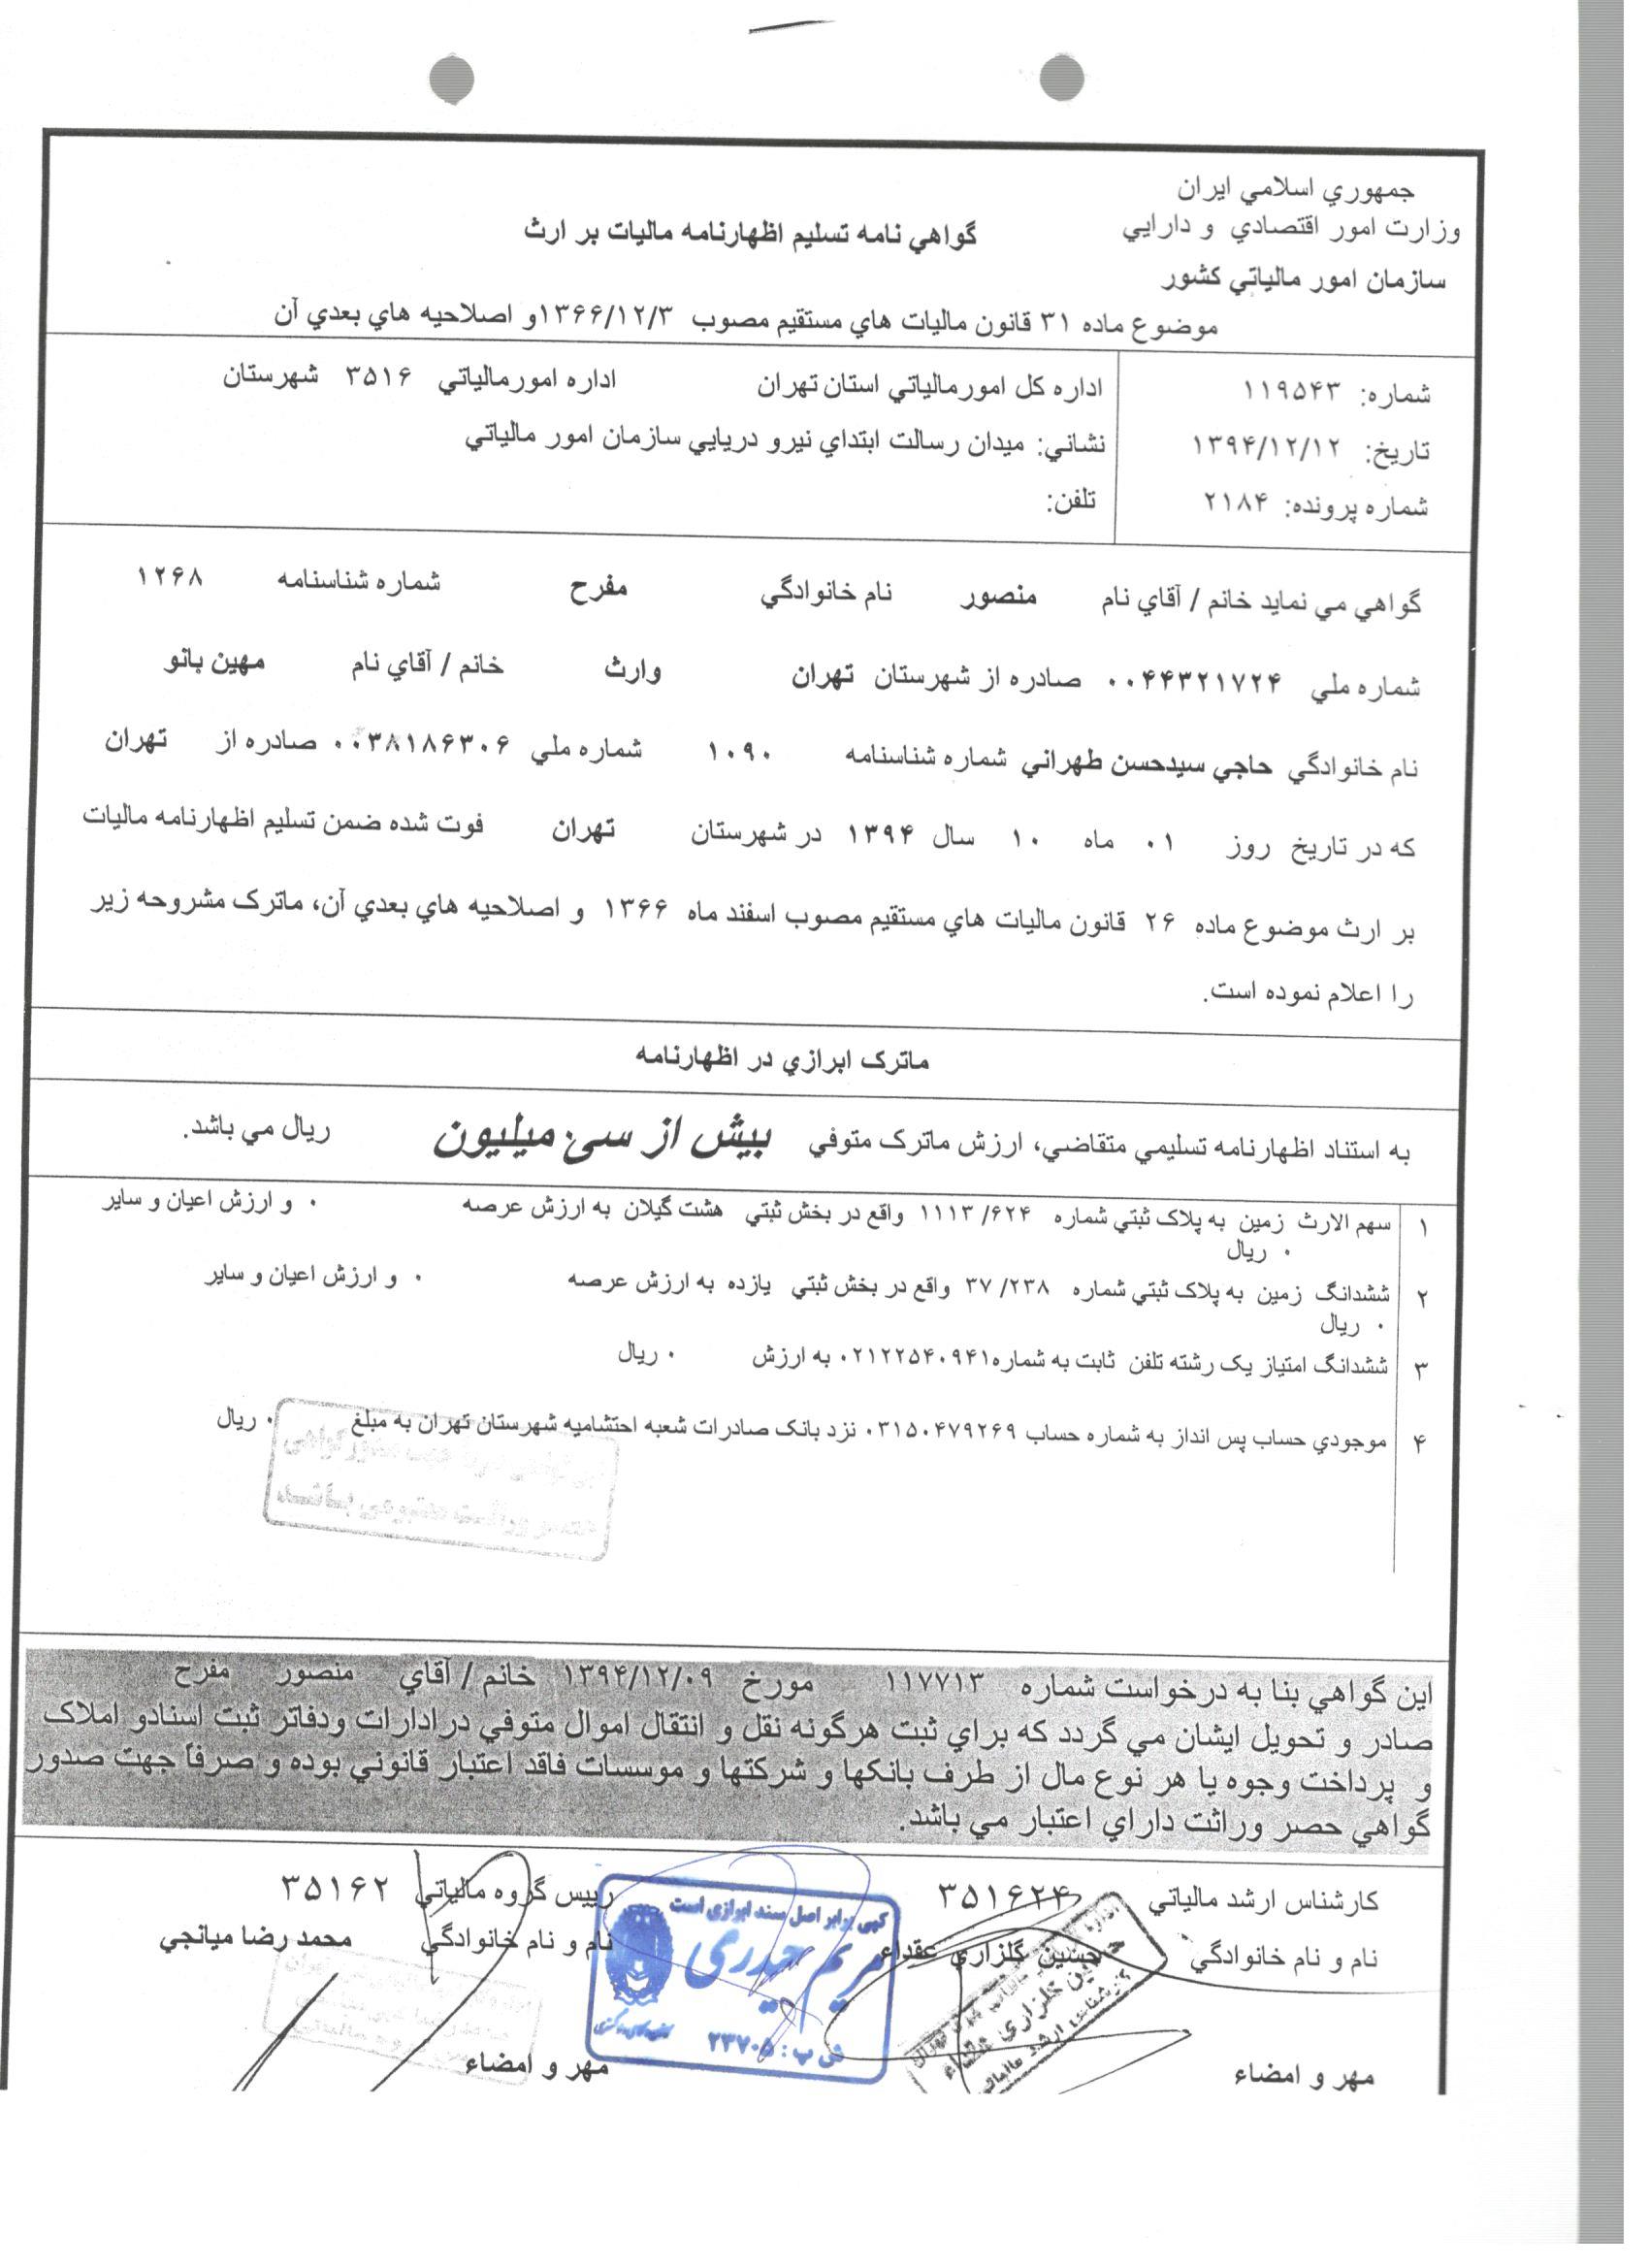 جمهوري اسلامي ايران
وزارت امور اقتصادي و دارايي
گواهي نامه تسليم اظهارنامه ماليات بر ارث
سازمان امور مالياتي كشور
موضوع ماده ۳۱ قانون ماليات هاي مستقيم مصوب ۱۳۶۶/۱۲/۳و اصلاحيه هاي بعدي آن
شماره: ۱۱۹۵۴۳
تاريخ: ۱۳۹۴/۱۲/۱۲
شماره پرونده: ۲۱۸۴
اداره كل امورمالياتي استان تهران اداره امورمالياتي ۳۵۱۶ شهرستان
نشاني: ميدان رسالت ابتداي نيرو دريايي سازمان امور مالياتي
تلفن:
گواهي مي نمايد خانم / آقاي نام منصور نام خانوادگي مفرح شماره شناسنامه ۱۲۶۸
شماره ملي ۰۰۴۴۳۲۱۷۲۴ صادره از شهرستان تهران وارث خانم / آقاي نام مهين بانو
نام خانوادگي حاجي سيدحسن طهراني شماره شناسنامه ۱۰۹۰ شماره ملي ۰۰۳۸۱۸۶۳۰۶ صادره از تهران
كه در تاريخ روز ۰۱ ماه ۱۰ سال ۱۳۹۴ در شهرستان تهران فوت شده ضمن تسليم اظهارنامه ماليات
بر ارث موضوع ماده ۲۶ قانون ماليات هاي مستقيم مصوب اسفند ماه ۱۳۶۶ و اصلاحيه هاي بعدي آن، ماترک مشروحه زير
را اعلام نموده است.
ماترک ابرازي در اظهارنامه
به استناد اظهارنامه تسليمي متقاضي، ارزش ماترک متوفي بیش از سی میلیون ريال مي باشد.
۱ سهم الارث زمين به پلاک ثبتي شماره ۱۱۱۳/۶۲۴ واقع در بخش ثبتي هشت گيلان به ارزش عرصه ۰ و ارزش اعيان و ساير
۰ ريال
۲ ششدانگ زمين به پلاک ثبتي شماره ۳۷/۲۳۸ واقع در بخش ثبتي يازده به ارزش عرصه ۰ و ارزش اعيان و ساير
۰ ريال
۳ ششدانگ امتياز يک رشته تلفن ثابت به شماره۰۲۱۲۲۵۴۰۹۴۱ به ارزش ۰ ريال
۴ موجودي حساب پس انداز به شماره حساب ۰۳۱۵۰۴۷۹۲۶۹ نزد بانک صادرات شعبه احتشاميه شهرستان تهران به مبلغ ۰ ريال
اين گواهي بنا به درخواست شماره ۱۱۷۷۱۳ مورخ ۱۳۹۴/۱۲/۰۹ خانم / آقاي منصور مفرح
صادر و تحويل ايشان مي گردد كه براي ثبت هرگونه نقل و انتقال اموال متوفي درادارات ودفاتر ثبت اسنادو املاک
و پرداخت وجوه يا هر نوع مال از طرف بانكها و شركتها و موسسات فاقد اعتبار قانوني بوده و صرفاً جهت صدور
گواهي حصر وراثت داراي اعتبار مي باشد.
كارشناس ارشد مالياتي ۳۵۱۶۲۴
نام و نام خانوادگي حسين گلزاري عقداء
مهر و امضاء
رييس گروه مالياتي ۳۵۱۶۲
نام و نام خانوادگي محمد رضا ميانجي
مهر و امضاء
کپی برابر اصل سند ابرازی است
مریم حیدری
ش پ : ۲۳۷۰۵